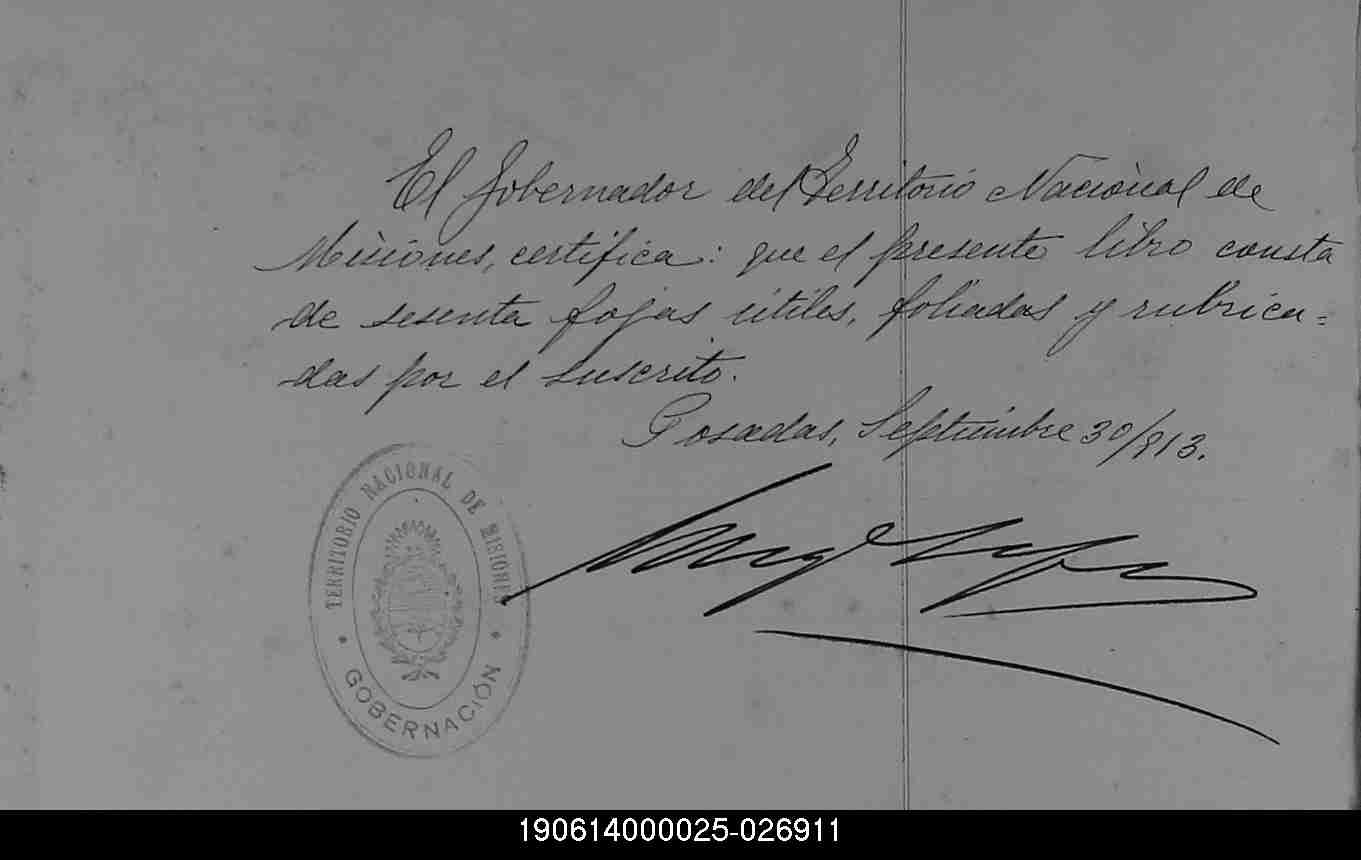 El Gobernador del Territorio Nacional de
Misiones, certifica: que el presente libro consta
de sesenta fojas útiles, foliadas y rubrica=
das por el suscrito.
Posadas, Septiembre 30/913.
TERRITORIO NACIONAL DE MISIONES
GOBERNACIÓN
190614000025-026911